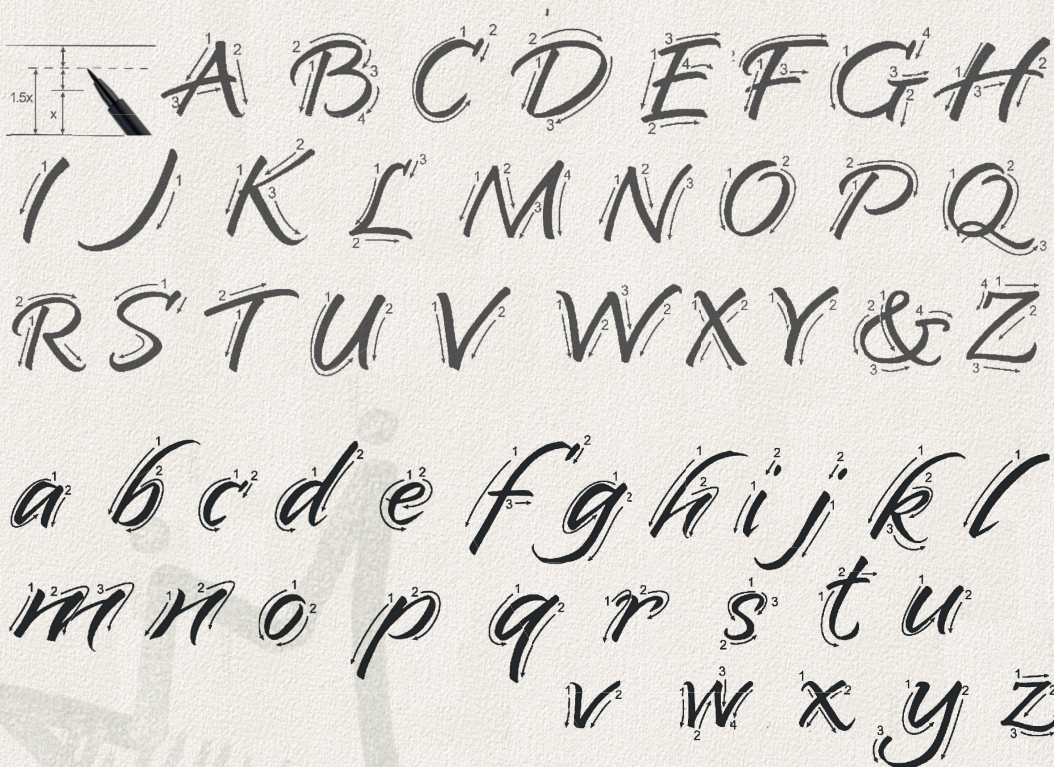 1.5x x A B C D E F G H
I J K L M N O P Q
R S T U V W X Y & Z
a b c d e f g h i j k l
m n o p q r s t u
v w x y z